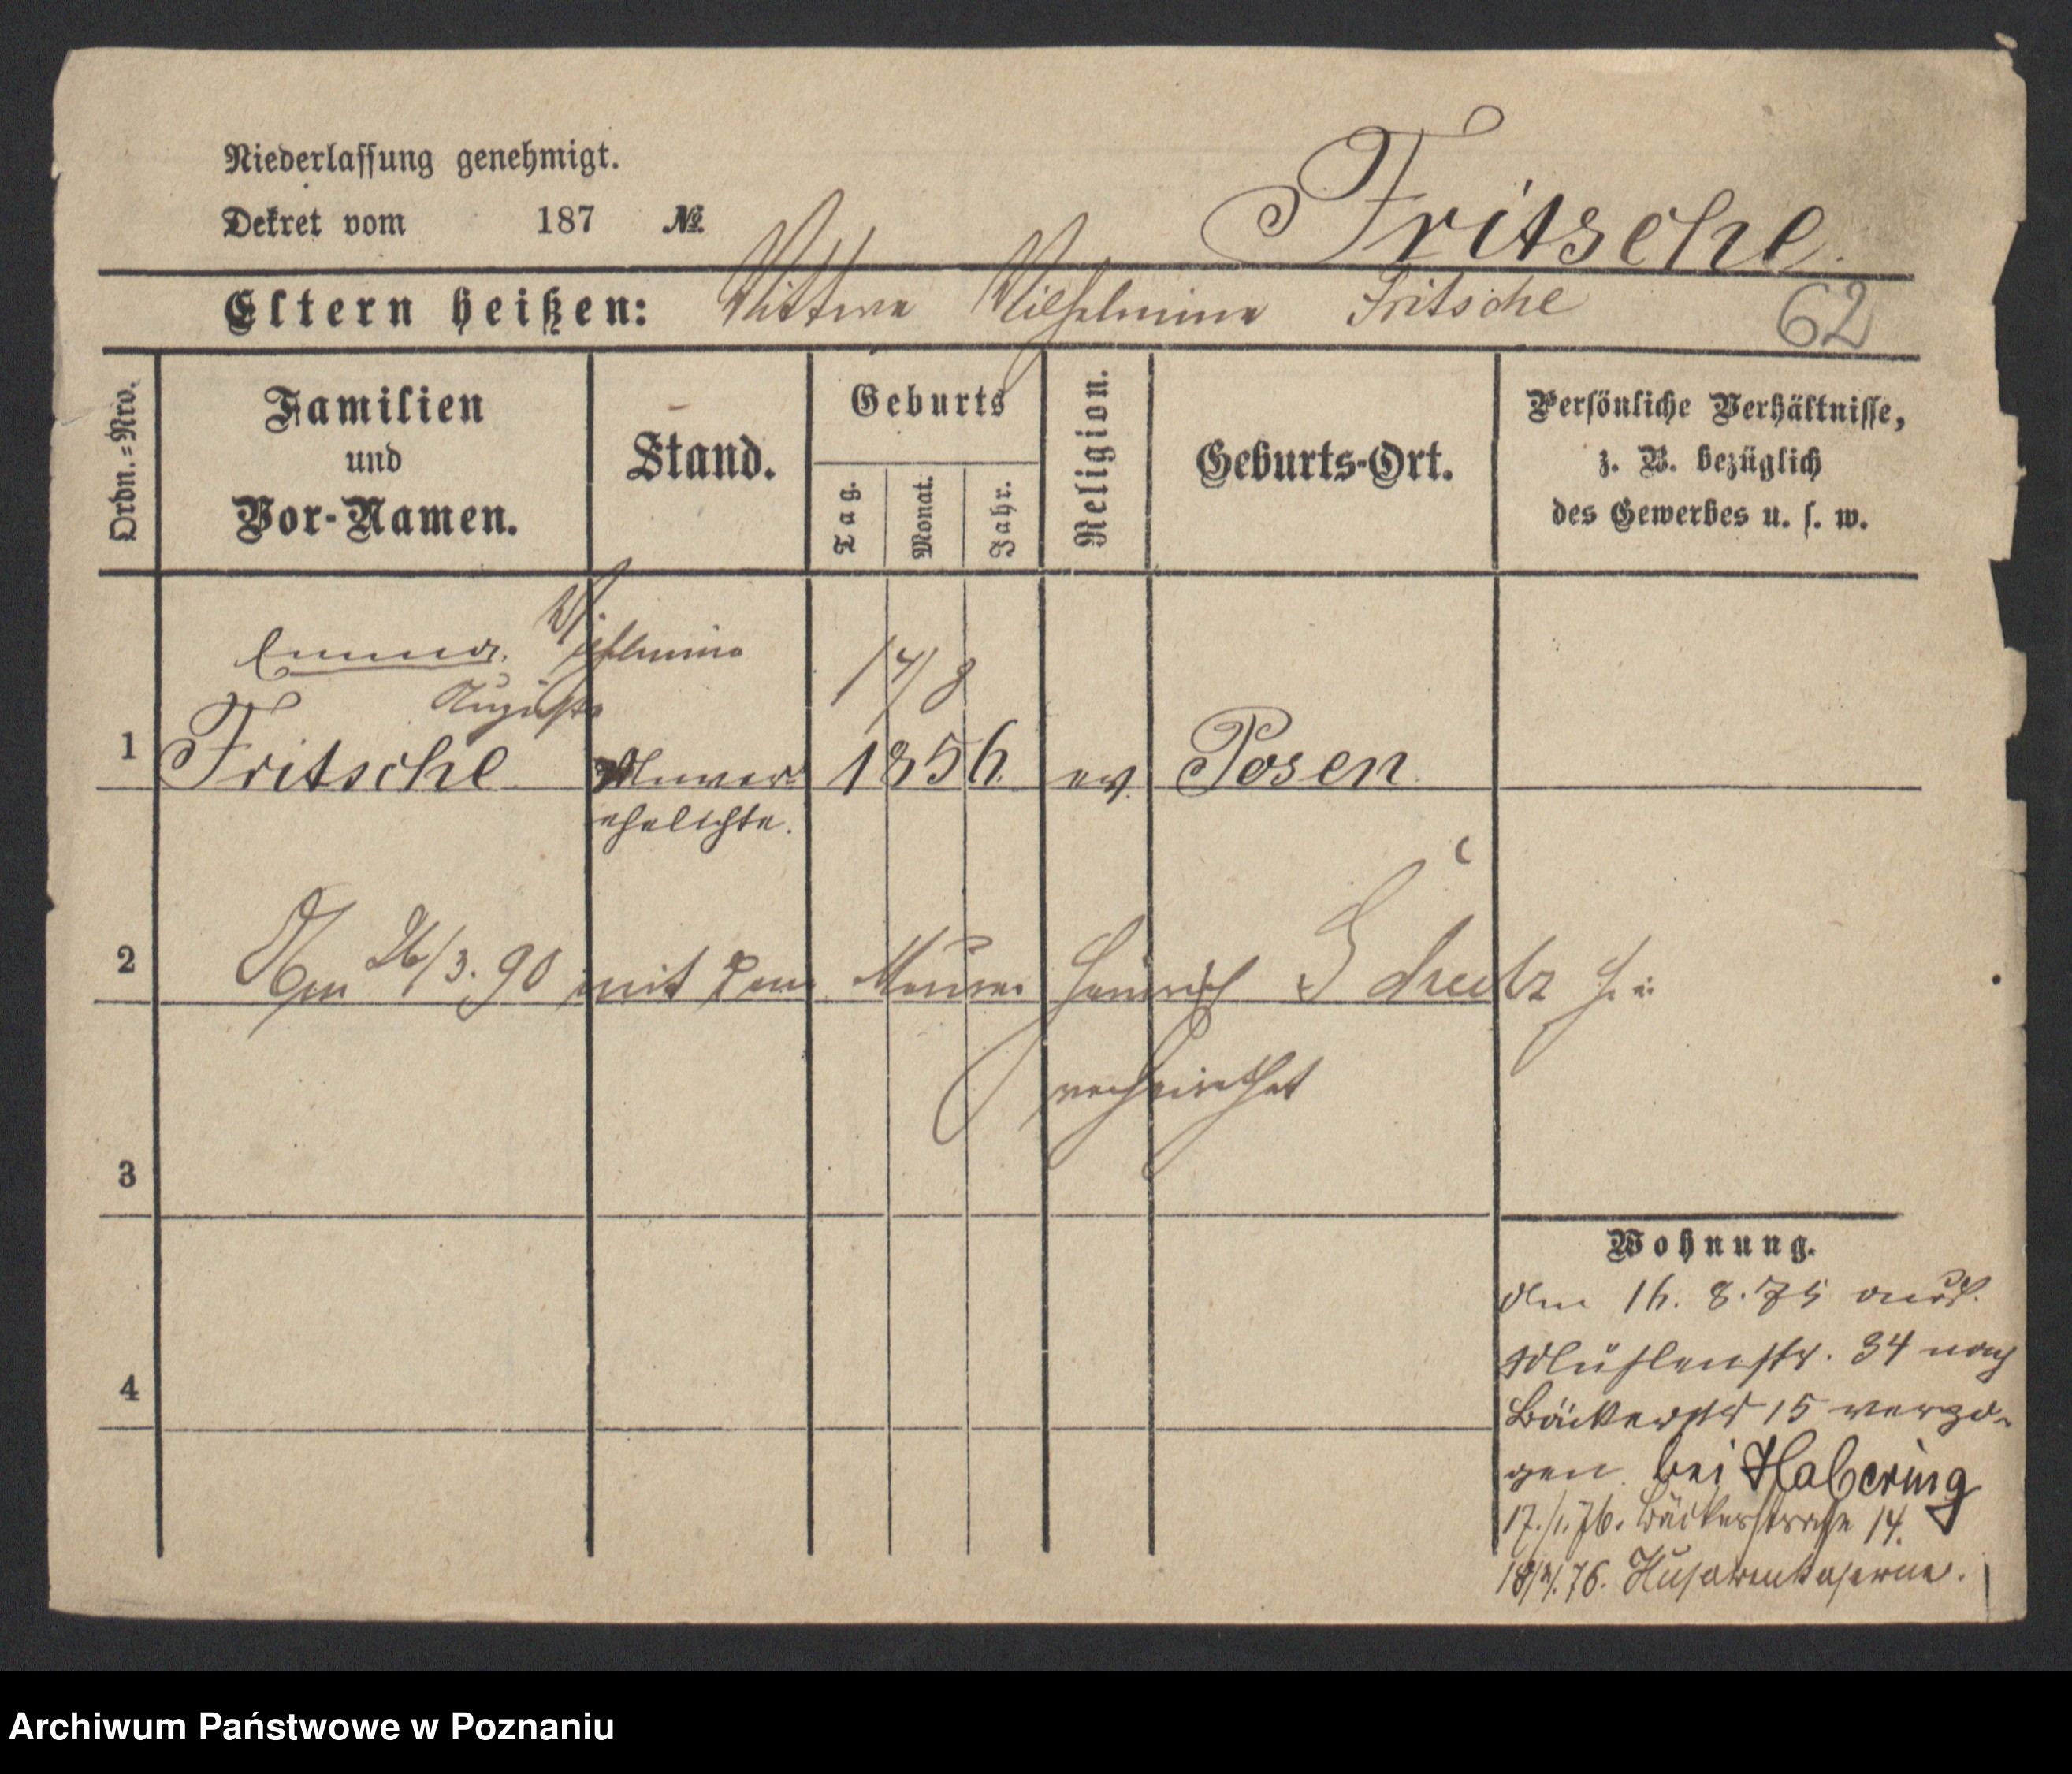 Niederlassung genehmigt.
Dekret vom 187 №
Fritsche.
Eltern heißen: Wittwe Wilhelmine Fritsche
62
Ordn.=Nro.
Familien
und
Vor-Namen.
Stand.
Geburts
Tag.
Monat.
Jahr.
Religion.
Geburts-Ort.
Persönliche Verhältnisse,
z. B. bezüglich
des Gewerbes u. s. w.
Emma Wilhelmine
Auguste
17/8
1 Fritsche Unver-
ehelichte. 1856 ev. Posen
2 Am 26/3. 90 mit dem Maurer Heinrich Schultz
verheirathet
3
4
Wohnung.
Am 16. 8. 75 aus
Mühlenstr. 34 nach
Bäckerstr 15 verzo-
gen bei Habering
17./1. 76. Bäckerstraße 14.
76. Husarenkaserne.
Archiwum Państwowe w Poznaniu